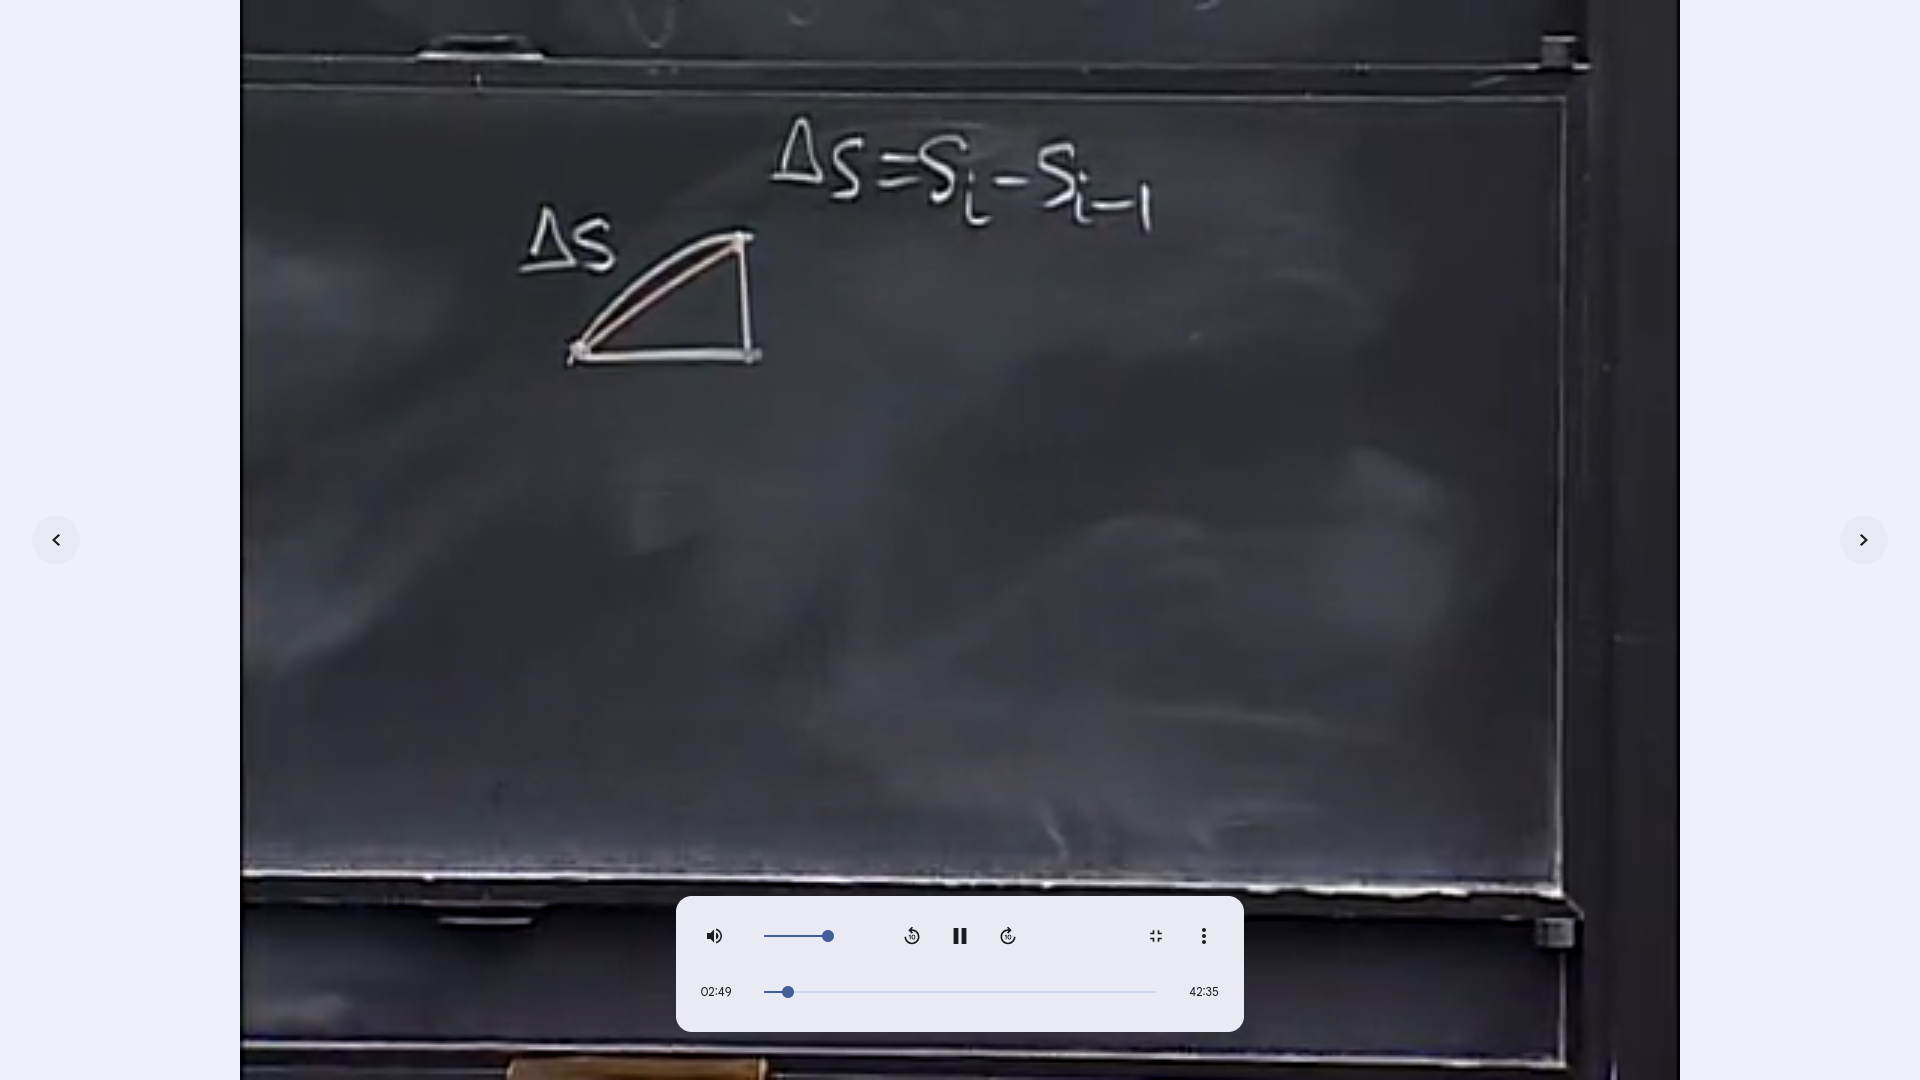 ΔS = S_i - S_{i-1}
ΔS
10
10
02:49
42:35